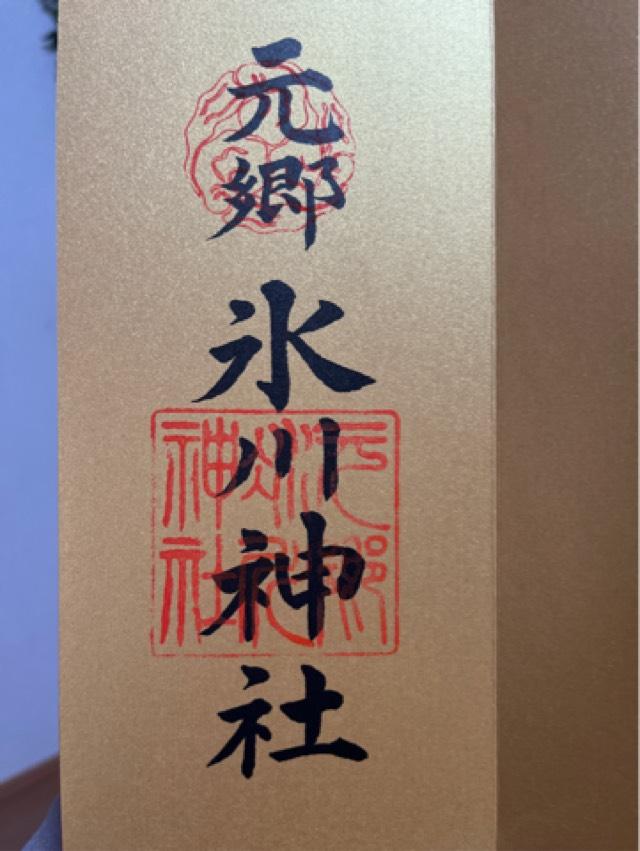 元郷
氷川神社
元郷氷川神社